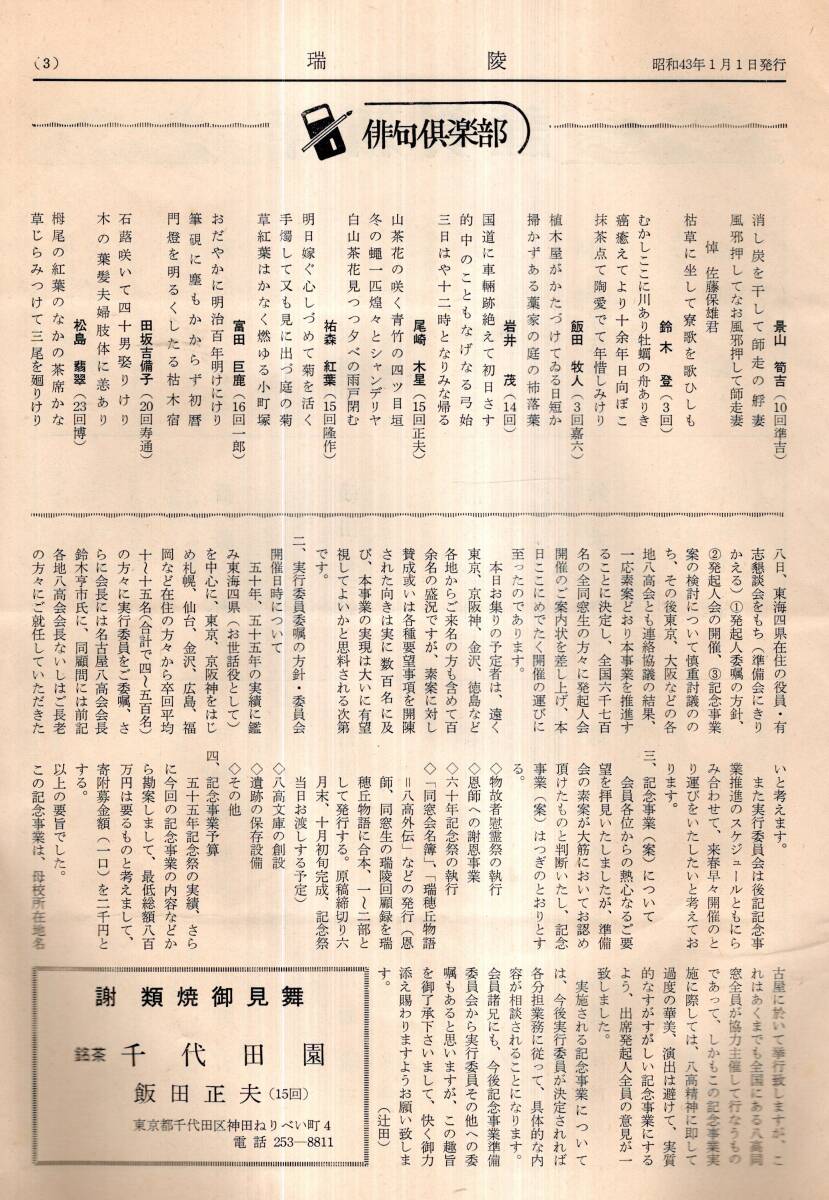 (3)
瑞陵
昭和43年1月1日発行
俳句倶楽部
景山 筍吉(10回準吉)
消し炭を干して師走の好妻
風邪押してなお風邪押して師走妻
悼 佐藤保雄君
枯草に坐して寮歌を歌ひしも
鈴木 登(3回)
むかしここに川あり牡蠣の舟ありき
癌癒えてより十余年日向ぼこ
抹茶点て陶愛でて年惜しみけり
飯田 牧人(3回嘉六)
植木屋がかたづけてゐる日短か
掃かずある藁家の庭の柿落葉
岩井 茂(14回)
国道に車輛跡絶えて初日さす
的中のこともなげなる弓始
三日はや十二時となりみな帰る
尾崎 木星(15回正夫)
山茶花の咲く青竹の四ツ目垣
冬の蠅一匹煌々とシャンデリヤ
白山茶花見つつ夕べの雨戸閉む
祐森 紅葉(15回隆作)
明日嫁ぐ心しづめて菊を活く
手燭して又も見に出づ庭の菊
草紅葉はかなく燃ゆる小町塚
富田 巨鹿(16回一郎)
おだやかに明治百年明けにけり
筆硯に塵もかからず初暦
門燈を明るくしたる枯木宿
田坂吉備子(20回寿通)
石蕗咲いて四十男娶りけり
木の葉髪夫婦肢体に恙あり
松島 翡翠(23回博)
栂尾の紅葉のなかの茶席かな
草じらみつけて三尾を廻りけり
八日、東海四県在住の役員・有
志懇談会をもち(準備会にきり
かえる)①発起人委嘱の方針、
②発起人会の開催、③記念事業
案の検討について慎重討議のの
ち、その後東京、大阪などの各
地八高会とも連絡協議の結果、
一応素案どおり本事業を推進す
ることに決定し、全国六千七百
名の全同窓生の方々に発起人会
開催のご案内状を差し上げ、本
日ここにめでたく開催の運びに
至ったのであります。
本日お集りの予定者は、遠く
東京、京阪神、金沢、徳島など
各地からご来名の方も含めて百
余名の盛況ですが、素案に対し
賛成或いは各種要望事項を開陳
された向きは実に数百名に及
び、本事業の実現は大いに有望
視してよいかと思料される次第
です。
二、実行委員委嘱の方針・委員会
開催日時について
五十年、五十五年の実績に鑑
み東海四県(お世話役として)
を中心に、東京、京阪神をはじ
め札幌、仙台、金沢、広島、福
岡など在住の方々から卒回平均
十〜十五名(合計で四〜五百名)
の方々に実行委員をご委嘱、さ
らに会長には名古屋八高会会長
鈴木亨市氏に、同顧問には前記
各地八高会会長ないしはご長老
の方々にご就任していただきた
いと考えます。
また実行委員会は後記記念事
業推進のスケジュールともにら
み合わせて、来春早々開催のと
り運びをいたしたいと考えてお
ります。
三、記念事業(案)について
会員各位からの熱心なるご要
望を拝見いたしましたが、準備
会の素案が大筋においてお認め
頂けたものと判断いたし、記念
事業(案)はつぎのとおりとす
る。
◇物故者慰霊祭の執行
◇恩師への謝恩事業
◇六十年記念祭の執行
◇「同窓会名簿」、「瑞穂丘物語
=八高外伝」などの発行(恩
師、同窓生の瑞陵回顧録を瑞
穂丘物語に合本、一〜二部と
して発行する。原稿締切り六
月末、十月初旬完成、記念祭
当日お渡しする予定)
◇八高文庫の創設
◇遺跡の保存設備
◇その他
四、記念事業予算
五十五年記念祭の実績、さら
に今回の記念事業の内容などか
ら勘案しまして、最低総額八百
万円は要るものと考えまして、
寄附募金額(一口)を二千円と
する。
以上の要旨でした。
この記念事業は、母校所在地名
古屋に於いて挙行致しますが、こ
れはあくまでも全国にある八高同
窓全員が協力主催して行なうもの
であって、しかもこの記念事業実
施に際しては、八高精神に即して
過度の華美、演出は避けて、実質
的なすがすがしい記念事業にする
よう、出席発起人全員の意見が一
致しました。
実施される記念事業について
は、今後実行委員が決定されれば
各分担業務に従って、具体的な内
容が相談されることになります。
会員諸兄にも、今後記念事業準備
委員会から実行委員その他への委
嘱もあると思いますが、この趣旨
を御了承下さいまして、快く御力
添え賜わりますようお願い致しま
す。
(辻田)
謝 類焼御見舞
銘茶 千代田園
飯田正夫(15回)
東京都千代田区神田ねりべい町4
電話 253—8811